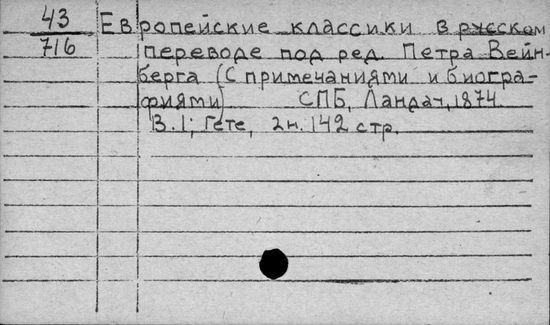 43 Европейские классики в русском
716 переводе под ред. Петра Вейн-
берга (С примечаниями и биогра-
фиями) СПБ, Ландау, 1874.
В. 1; Гете, 2н. 142 стр.